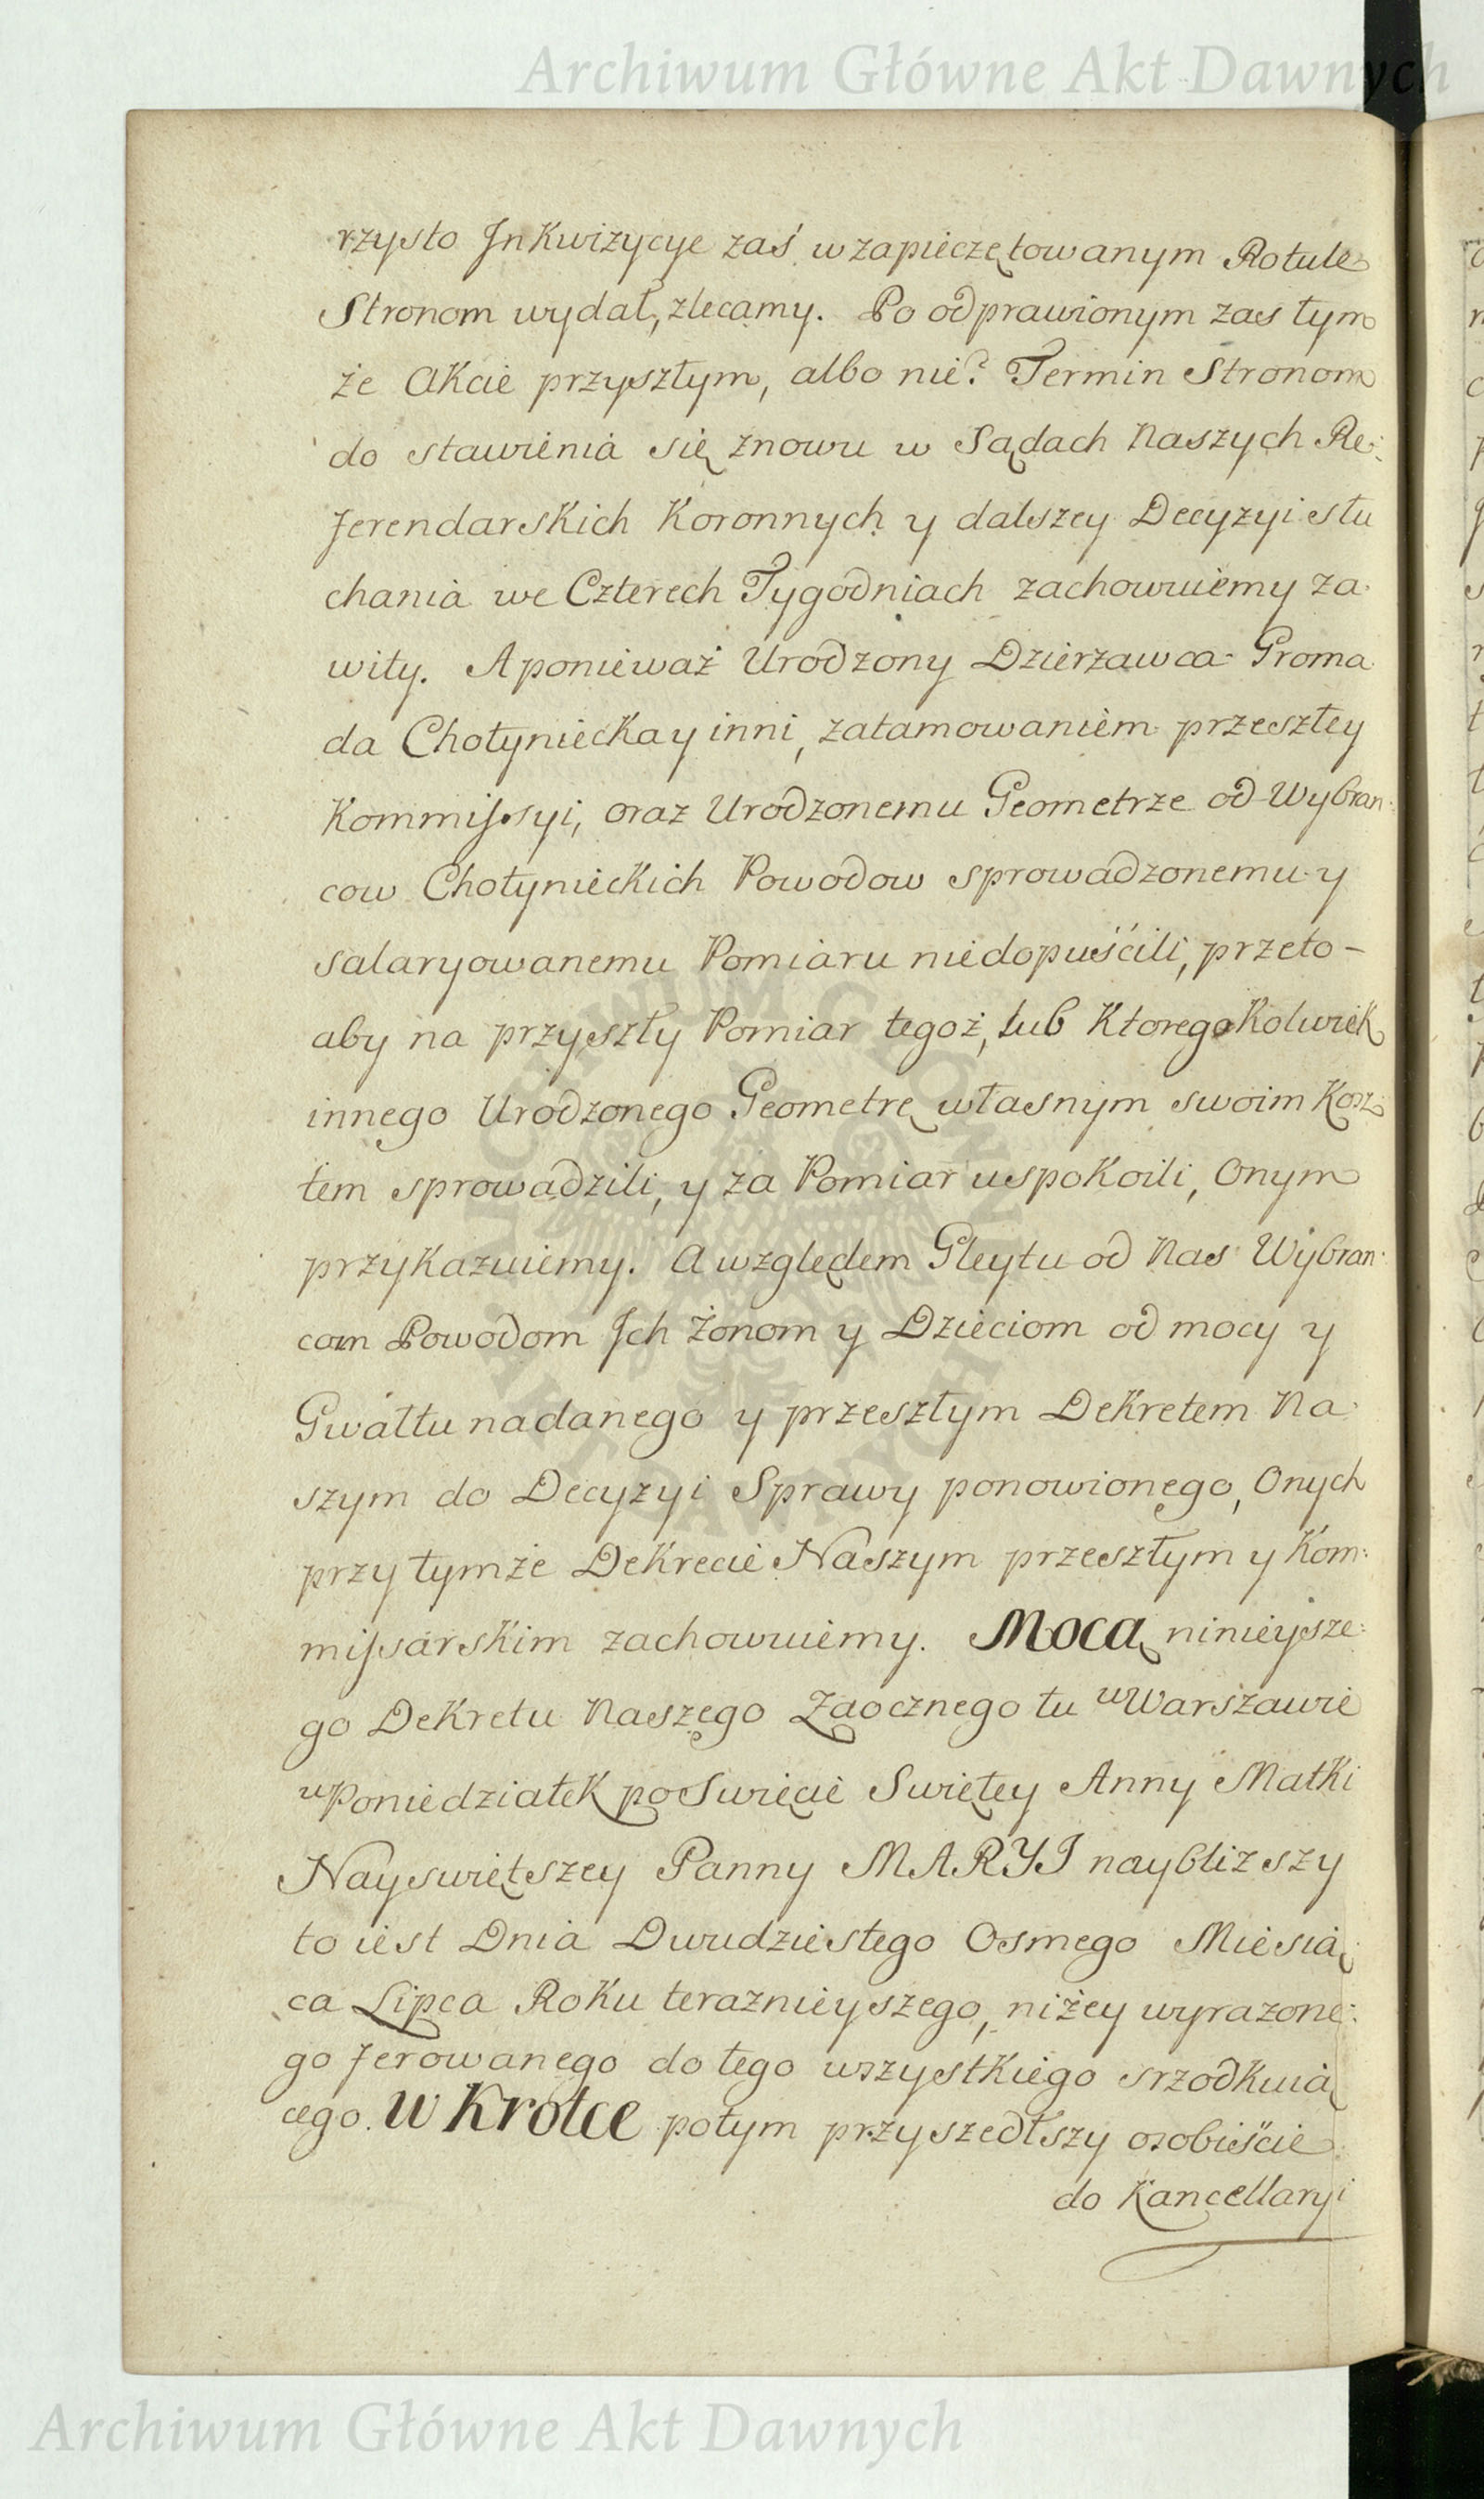 Archiwum Główne Akt Dawnych
rzysto Jnkwizycye zaś w zapieczętowanym Rotule
Stronom wydał, zlecamy. Po odprawionym zas tym
że Akcie przyszłym, albo nie? Termin Stronom
do stawienia się znowu w Sądach Naszych Re:
ferendarskich Koronnych y dalszey Decyzyi słu
chania we Czterech Tygodniach zachowuiemy za
wity. A ponieważ Urodzony Dzierzawca Groma
da Chotyniecka y inni, zatamowaniem przeszłey
Kommissyi, oraz Urodzonemu Geometrze od Wybran
cow Chotynieckich Powodow sprowadzonemu y
salaryowanemu Pomiaru niedopuścili, przeto –
aby na przyszły Pomiar tegoż, lub Ktoregokolwiek
innego Urodzonego Geometrę własnym swoim Kosz
tem sprowadzili, y za Pomiar uspokoili, Onym
przykazuiemy. A względem Gleytu od Nas Wybran
com Powodom Jch Żonom y Dzieciom od mocy y
Gwałtu nadanego y przeszłym Dekretem Na
szym do Decyzyi Sprawy ponowionego, Onych
przy tymże Dekrecie Naszym przeszłym y Kom:
missarskim zachowuiemy. Mocą ninieysze:
go Dekretu Naszego Zaocznego tu w Warszawie
w Poniedziałek po Swięcie Swiętey Anny Matki
Nayswiętszey Panny MARYI naybliższy
to iest Dnia Dwudziestego Osmego Miesią
ca Lipca Roku teraznieyszego, niżey wyrazone:
go ferowanego do tego wszystkiego srzodkuią
cego. W Krotce potym przyszedłszy osobiście
do Kancellaryi
ARCHIWUM GŁÓWNE AKT DAWNYCH
Archiwum Główne Akt Dawnych